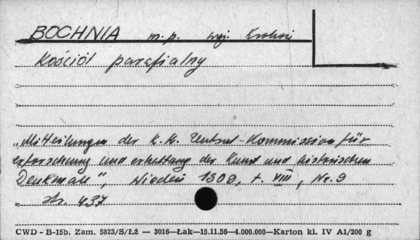 BOCHNIA m.p. woj. Krakow
Kościół parafialny
"Mitteilungen der K.K. Central-Kommission für
erforschung und erhaltung der Kunst und historischen
Denkmale", Wiedeń 1909, t. VIII, Nr. 9
str. 437
CWD - B-15b. Zam. 5823/S/ŁŻ — 3016—Łak—15.11.56—4.000.000—Karton kl. IV A1/200 g